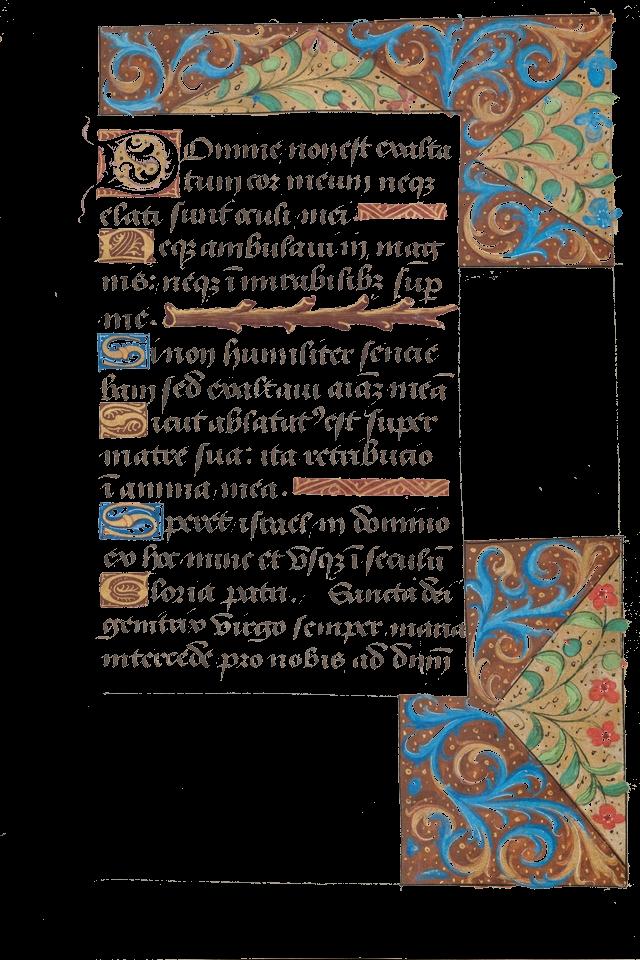 Domine non est exalta
tum cor meum neqꝫ
elati sunt oculi mei.
Neqꝫ ambulaui in mag
nis: neqꝫ ī mirabilibꝫ suꝑ
me.
Si non humiliter sentie
bam sed exaltaui aīaꝫ meā
Sicut ablatatꝰ est super
matre sua: ita retribucio
ī anima mea.
Speret israel in domino
ex hoc nunc et vsqꝫ ī seculū
Gloria patri. Sancta dei
genitrix virgo semper maria
intercede pro nobis ad dn̄m